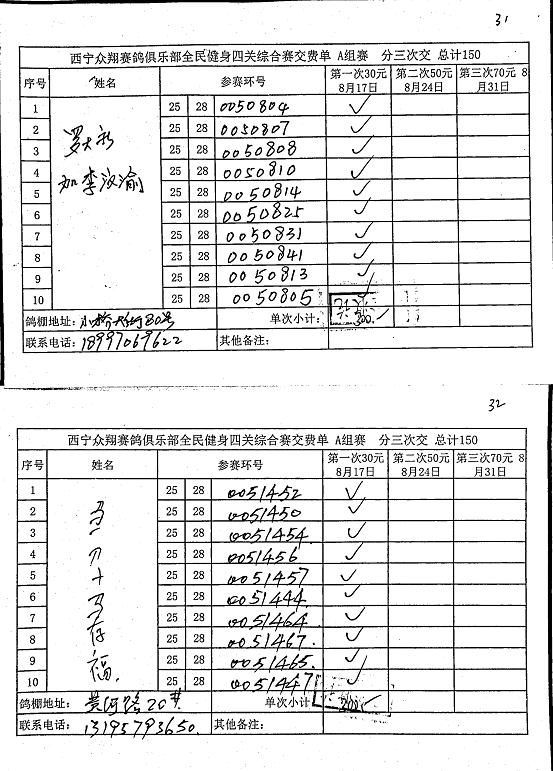 31
西宁众翔赛鸽俱乐部全民健身四关综合赛交费单 A组赛 分三次交 总计150
序号 姓名 参赛环号 第一次30元 8月17日 第二次50元 8月24日 第三次70元 8月31日
1 25 28 0050804 ✓
2 25 28 0050807 ✓
3 25 28 0050808 ✓
4 25 28 0050810 ✓
5 25 28 0050814 ✓
6 25 28 0050825 ✓
7 25 28 0050831 ✓
8 25 28 0050841 ✓
9 25 28 0050813 ✓
10 25 28 0050805 ✓
罗大永
加李汶渝
鸽棚地址: 小桥大街80号 单次小计: 300
联系电话: 18997069622 其他备注:
32
西宁众翔赛鸽俱乐部全民健身四关综合赛交费单 A组赛 分三次交 总计150
序号 姓名 参赛环号 第一次30元 8月17日 第二次50元 8月24日 第三次70元 8月31日
1 25 28 0051452 ✓
2 25 28 0051450 ✓
3 25 28 0051454 ✓
4 25 28 0051456 ✓
5 25 28 0051457 ✓
6 25 28 0051444 ✓
7 25 28 0051464 ✓
8 25 28 0051467 ✓
9 25 28 0051465 ✓
10 25 28 0051447 ✓
马
十
马
存
福
鸽棚地址: 黄河路20# 单次小计:
联系电话: 13195793650 其他备注: